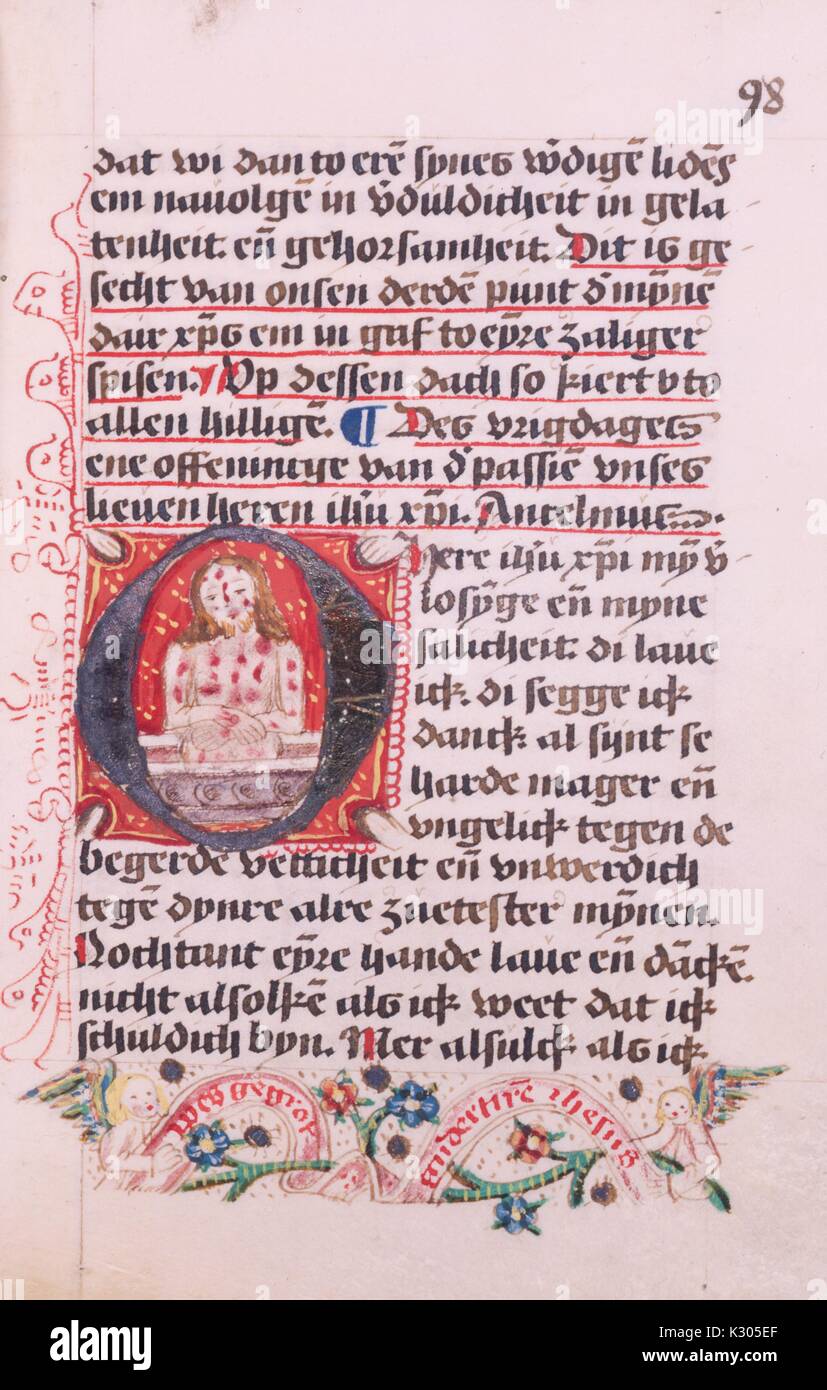 98
dat wi dan to erē synes w̄digē lidēs
em nauolgē in v̄duldicheit in gela
tenheit. en̄ gehorsamheit. Dit is ge
secht van onsen derdē punt d' mynē
dair xp̄s em in gaf to eyre zaliger
spisen. Vp dessen dach so kiert v to
allen hilligē. ¶ Des vrigdages
ene offeninge van d' passiē vnses
lieuen heren ih̄u xp̄i. Ancelmus.
O Here ih̄u xp̄i my v̄
losyge en̄ myne
salicheit. di laue
ick. di segge ick
danck. al synt se
harde mager en̄
vngelick tegen de
begerde vetticheit en̄ vnwerdich
tegē dynre alre zuetester mynen.
Nochtant eyre hande laue en̄ dāckē.
nicht alsolkē als ick weet dat ick
schuldich byn. Mer alsulck als ick
wes gegrot
ihesus
alamy
alamy
Image ID: K305EF
www.alamy.com